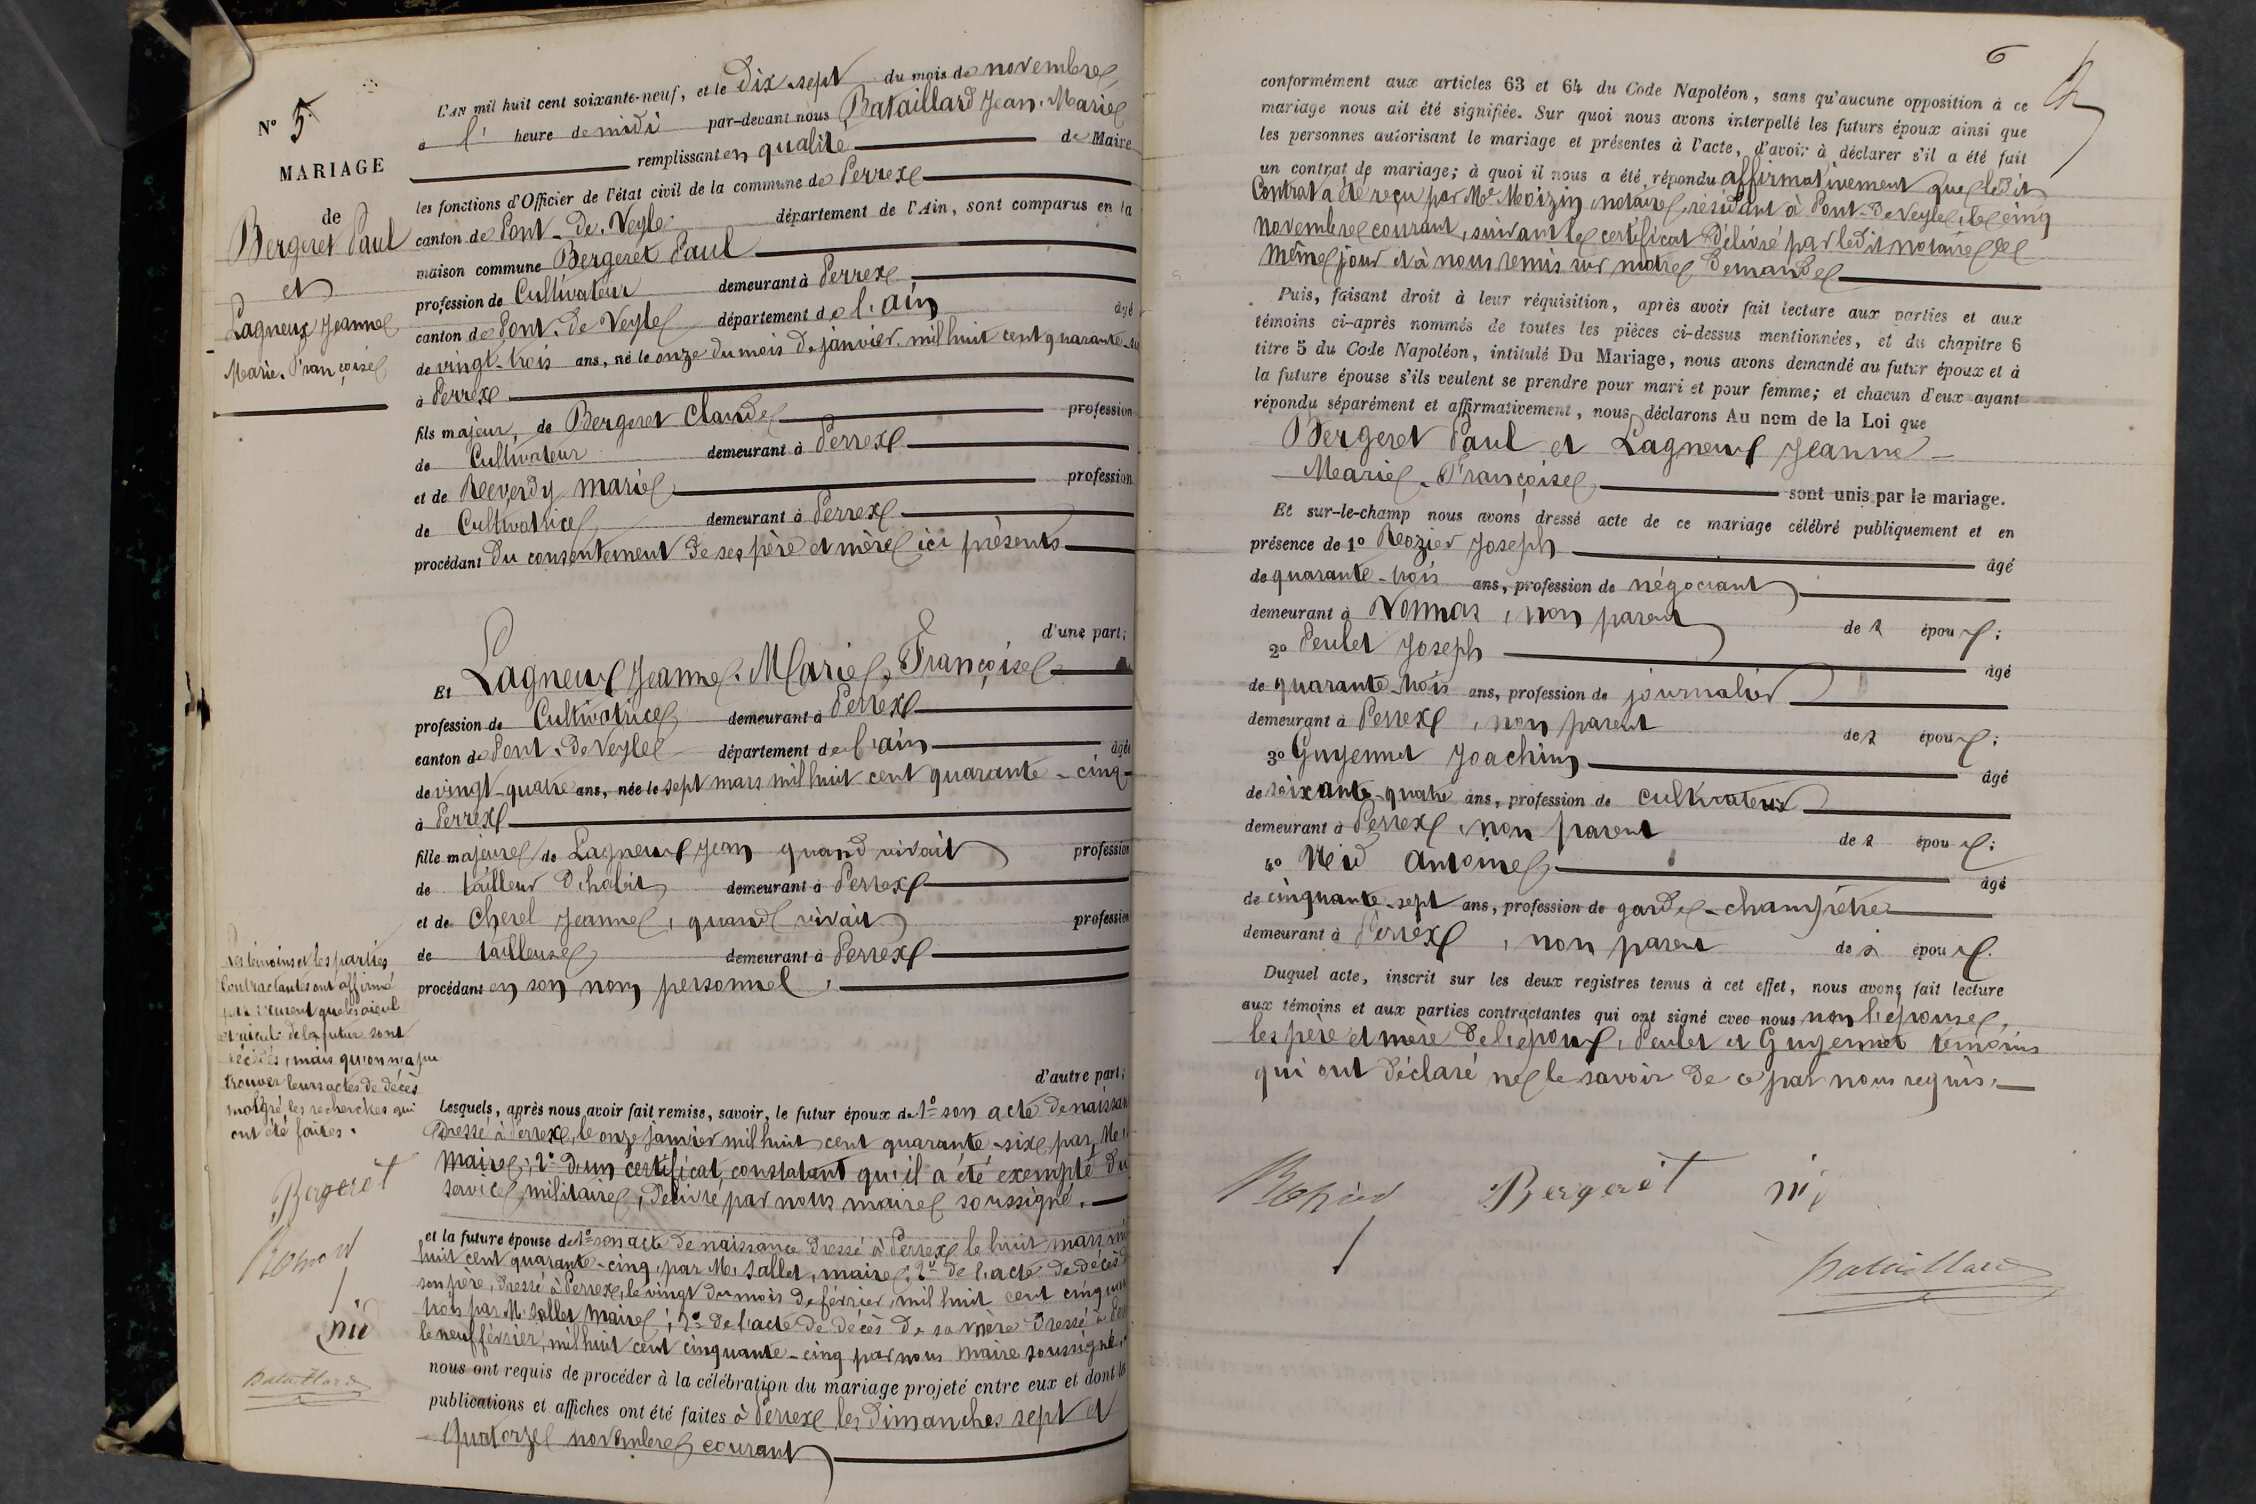 N° 5
MARIAGE
de
Bergeret Paul
et
Lagneux Jeanne
Marie-Françoise
L'AN mil huit cent soixante-neuf, et le Dix-sept du mois de novembre,
à l' heure de midi par-devant nous Bataillard Jean-Marie
remplissant en qualité de Maire
les fonctions d'Officier de l'état civil de la commune de Perrex
canton de Pont-de-Veyle département de l'Ain, sont comparus en la
maison commune Bergeret Paul
profession de Cultivateur demeurant à Perrex
canton de Pont-de-Veyle département de l'ain âgé
de vingt-trois ans, né le onze du mois de janvier mil huit cent quarante
à Perrex
fils majeur, de Bergeret Claude profession
de Cultivateur demeurant à Perrex
et de Reverdy Marie profession
de Cultivatrice demeurant à Perrex
procédant du consentement de ses père et mère ici présents
d'une part;
Et Lagneux Jeanne-Marie-Françoise
profession de Cultivatrice demeurant à Perrex
canton de Pont-de-Veyle département de l'ain âgée
de vingt-quatre ans, née le sept mars mil huit cent quarante-cinq
à Perrex
fille majeure de Lagneux Jean quand vivait profession
de tailleur d'habit demeurant à Perrex
et de Cherel Jeanne, quand vivait profession
de tailleuse demeurant à Perrex
procédant en son nom personnel,
d'autre part;
Les témoins et les parties
Contractantes ont affirmé
que les aïeul
et aïeule de la futur sont
décédés, mais qu'on n'a pu
trouver leurs actes de décès
malgré les recherches qui
ont été faites.
Bergeret
nid
Bataillard
Lesquels, après nous avoir fait remise, savoir, le futur époux de 1° son acte de naissan
Dressé à Perrex, le onze janvier mil huit cent quarante-six, par Mr
maire; 2° d'un certificat, constatant qu'il a été exempté du
service militaire, délivré par nous maire soussigné.
et la future épouse de 1° son acte de naissance dressé à Perrex le huit mars mil
huit cent quarante-cinq, par M. Sallet, maire; 2° de l'acte de décès
son père, dressé à Perrex, le vingt du mois de février, mil huit cent cinquan
trois par M. Sallet maire; 3° de l'acte de décès de sa mère dressé à Per
le neuf février, mil huit cent cinquante-cinq par nous maire soussigné,
nous ont requis de procéder à la célébration du mariage projeté entre eux et dont les
publications et affiches ont été faites à Perrex les dimanches sept et
Quatorze novembre courant
6
conformément aux articles 63 et 64 du Code Napoléon, sans qu'aucune opposition à ce
mariage nous ait été signifiée. Sur quoi nous avons interpellé les futurs époux ainsi que
les personnes autorisant le mariage et présentes à l'acte, d'avoir à déclarer s'il a été fait
un contrat de mariage; à quoi il nous a été répondu affirmativement que ledit
Contrat a été reçu par Me Moizin, notaire, résidant à Pont-de-Veyle, le cinq
novembre courant, suivant le certificat délivré par ledit notaire
même jour et à nous remis sur notre demande
Puis, faisant droit à leur réquisition, après avoir fait lecture aux parties et aux
témoins ci-après nommés de toutes les pièces ci-dessus mentionnées, et du chapitre 6
titre 5 du Code Napoléon, intitulé Du Mariage, nous avons demandé au futur époux et à
la future épouse s'ils veulent se prendre pour mari et pour femme; et chacun d'eux ayant
répondu séparément et affirmativement, nous déclarons Au nom de la Loi que
Bergeret Paul et Lagneux Jeanne
Marie-Françoise sont unis par le mariage.
Et sur-le-champ nous avons dressé acte de ce mariage célébré publiquement et en
présence de 1° Rozier Joseph âgé
de quarante-trois ans, profession de négociant
demeurant à Vonnas, non parent des époux;
2° Peulet Joseph âgé
de quarante-trois ans, profession de journalier
demeurant à Perrex, non parent des époux;
3° Guyennet Joachim âgé
de soixante-quatre ans, profession de cultivateur
demeurant à Perrex, non parent des époux;
4° Nid Antoine âgé
de cinquante-sept ans, profession de garde-champêtre
demeurant à Perrex, non parent des époux.
Duquel acte, inscrit sur les deux registres tenus à cet effet, nous avons fait lecture
aux témoins et aux parties contractantes qui ont signé avec nous non l'épouse,
les père et mère de l'époux, Peulet et Guyennet témoins
qui ont déclaré ne le savoir de ce par nous requis.
Bergeret
nid
Bataillard